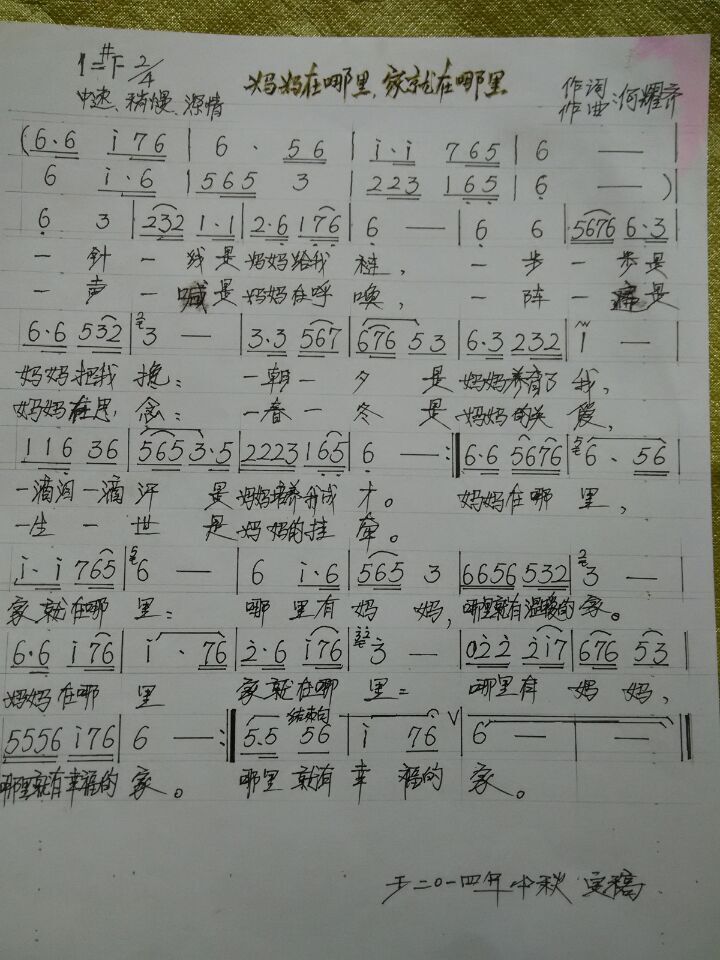 1=#F 2/4
妈妈在哪里,家就在哪里
中速、稍慢、深情
作词
作曲:何耀齐
(6·6 i76 | 6 · 56 | i·i 765 | 6 — |
6 i·6 | 565 3 | 223 165 | 6 — )
6 3 | 232 1·1 | 2·6 176 | 6 — | 6 6 | 5676 6·3 |
一针一线是妈妈给我缝,一步一步是
一声一喊是妈妈在呼唤,一阵一痛是
6·6 532 | 3 — | 3·3 567 | 676 53 | 6·3 232 | i — |
妈妈把我挽;一朝一夕是妈妈养育了我,
妈妈在思念;一春一冬是妈妈的关爱,
116 36 | 565 3·5 | 2223 165 | 6 — :| 6·6 5676 | 6 · 56 |
一滴泪一滴汗是妈妈培养我成才。妈妈在哪里,
一生一世是妈妈的挂牵。
i·i 765 | 6 — | 6 i·6 | 565 3 | 6656 532 | 3 — |
家就在哪里;哪里有妈妈,哪里就有温暖的家。
6·6 i76 | i · 76 | 2·6 i76 | 3 — | 022 2i7 | 676 53 |
妈妈在哪里家就在哪里;哪里有妈妈,
结束句
5556 i76 | 6 — :| 5·5 56 | i 76 | 6 — | — ||
哪里就有幸福的家。哪里就有幸福的家。
于二〇一四年中秋定稿